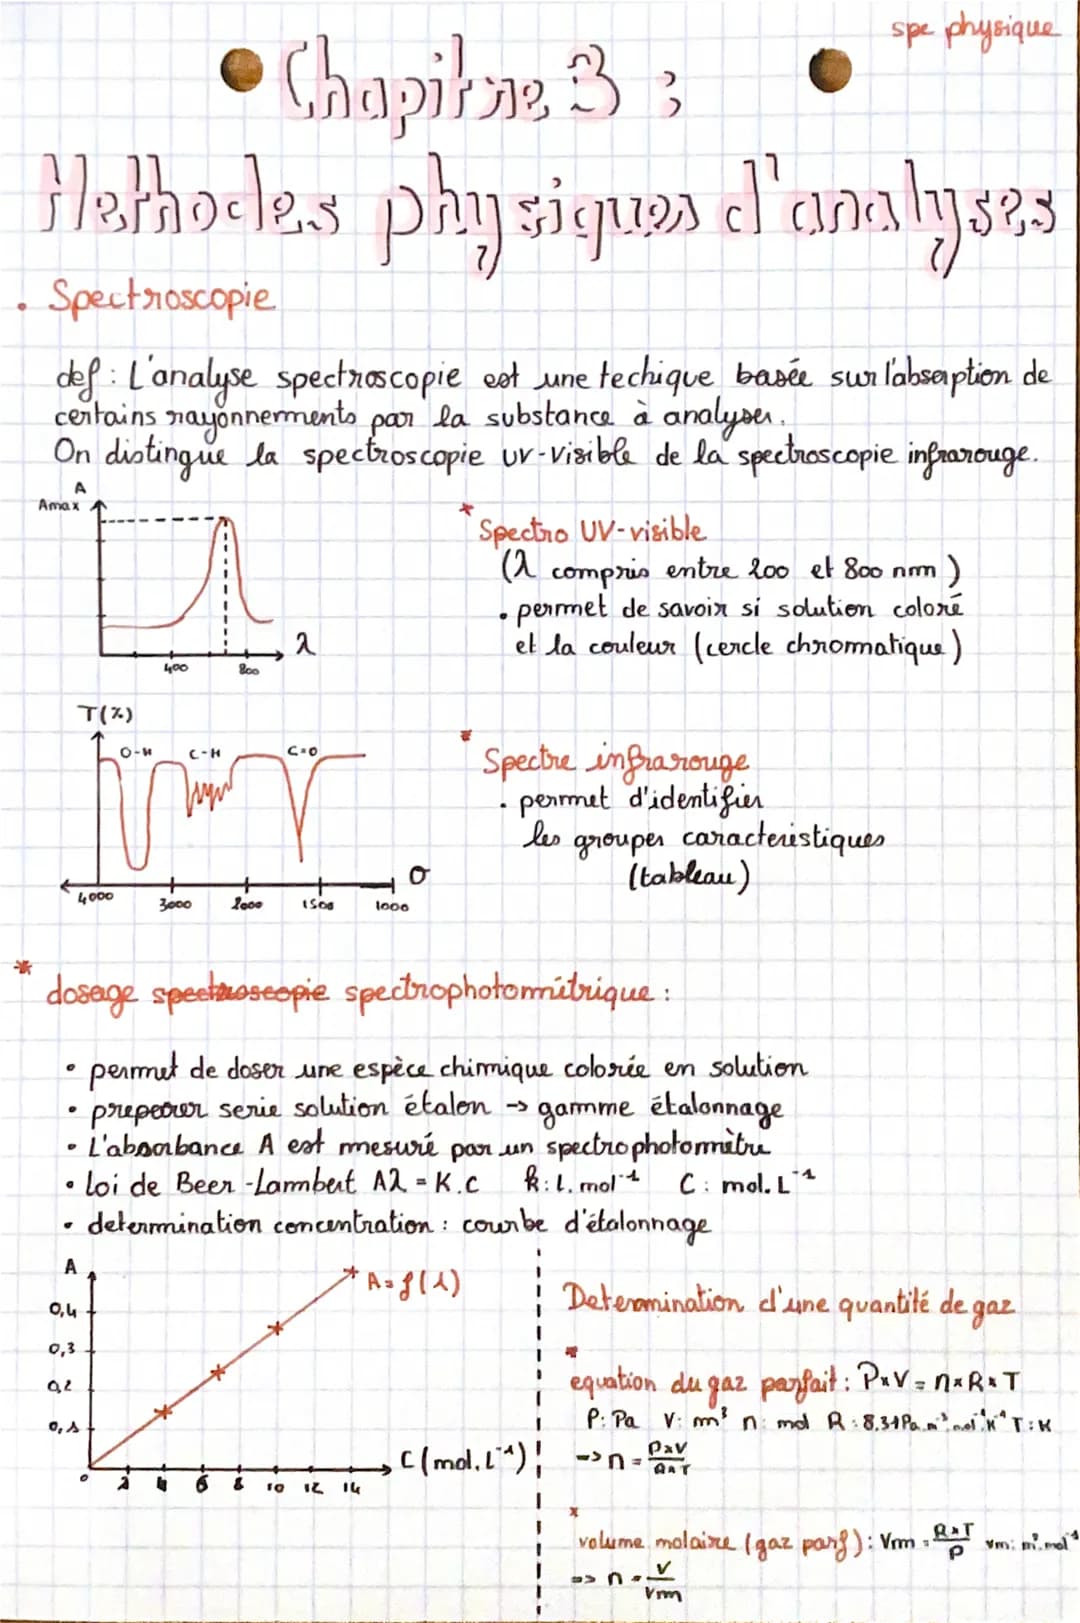 spe physique
Chapitre 3 :
Methodes physiques d'analyses
. Spectroscopie
def : L'analyse spectroscopie est une techique basée sur l'absorption de
certains rayonnements par la substance à analyser.
On distingue la spectroscopie UV-visible de la spectroscopie infrarouge.
A
Amax
400
800
λ
* Spectro UV-visible
(λ compris entre 200 et 800 nm)
. permet de savoir si solution coloré
et la couleur (cercle chromatique)
T(%)
O-H C-H C=O
4000 3000 2000 1500 1000
σ
* Spectre infrarouge
. permet d'identifier
les groupes caracteristiques
(tableau)
* dosage spectroscopie spectrophotométrique :
• permet de doser une espèce chimique colorée en solution
• preparer serie solution étalon → gamme étalonnage
• L'absorbance A est mesuré par un spectrophotomètre
• loi de Beer-Lambert Aλ = K.C k: L.mol⁻¹ C: mol.L⁻¹
• determination concentration : courbe d'étalonnage
A
0,4
0,3
0,2
0,1
0 2 4 6 8 10 12 14
C (mol.L⁻¹)
A=f(λ)
Determination d'une quantité de gaz
*
equation du gaz parfait : P×V = n×R×T
P: Pa V: m³ n: mol R: 8,31 Pa.m³.mol⁻¹.K⁻¹ T: K
=> n = P×V/R×T
*
volume molaire (gaz parf) : Vm = R×T/P vm: m³.mol⁻¹
=> n = V/Vm